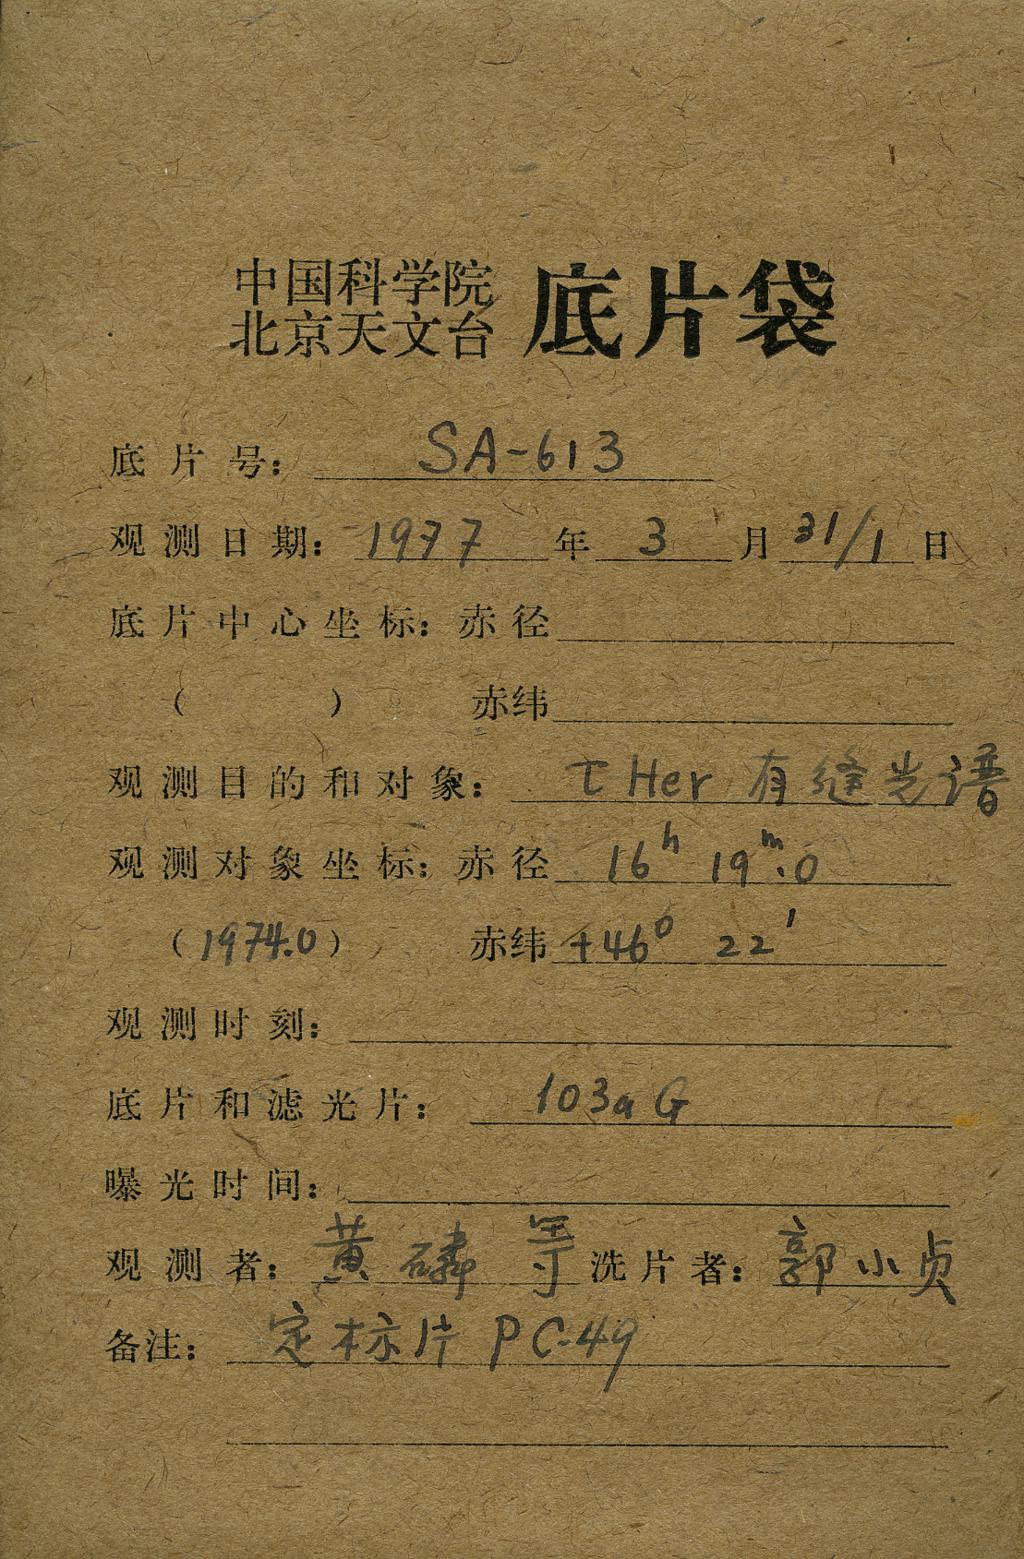 中国科学院
北京天文台 底片袋
底片号: SA-613
观测日期: 1977 年 3 月 31/1 日
底片中心坐标: 赤径
( ) 赤纬
观测目的和对象: τ Her 有缝光谱
观测对象坐标: 赤径 16h 19m.0
(1974.0) 赤纬 +46° 22′
观测时刻:
底片和滤光片: 103aG
曝光时间:
观测者: 黄磷 等 洗片者: 郭小贞
备注: 定标片 PC-49